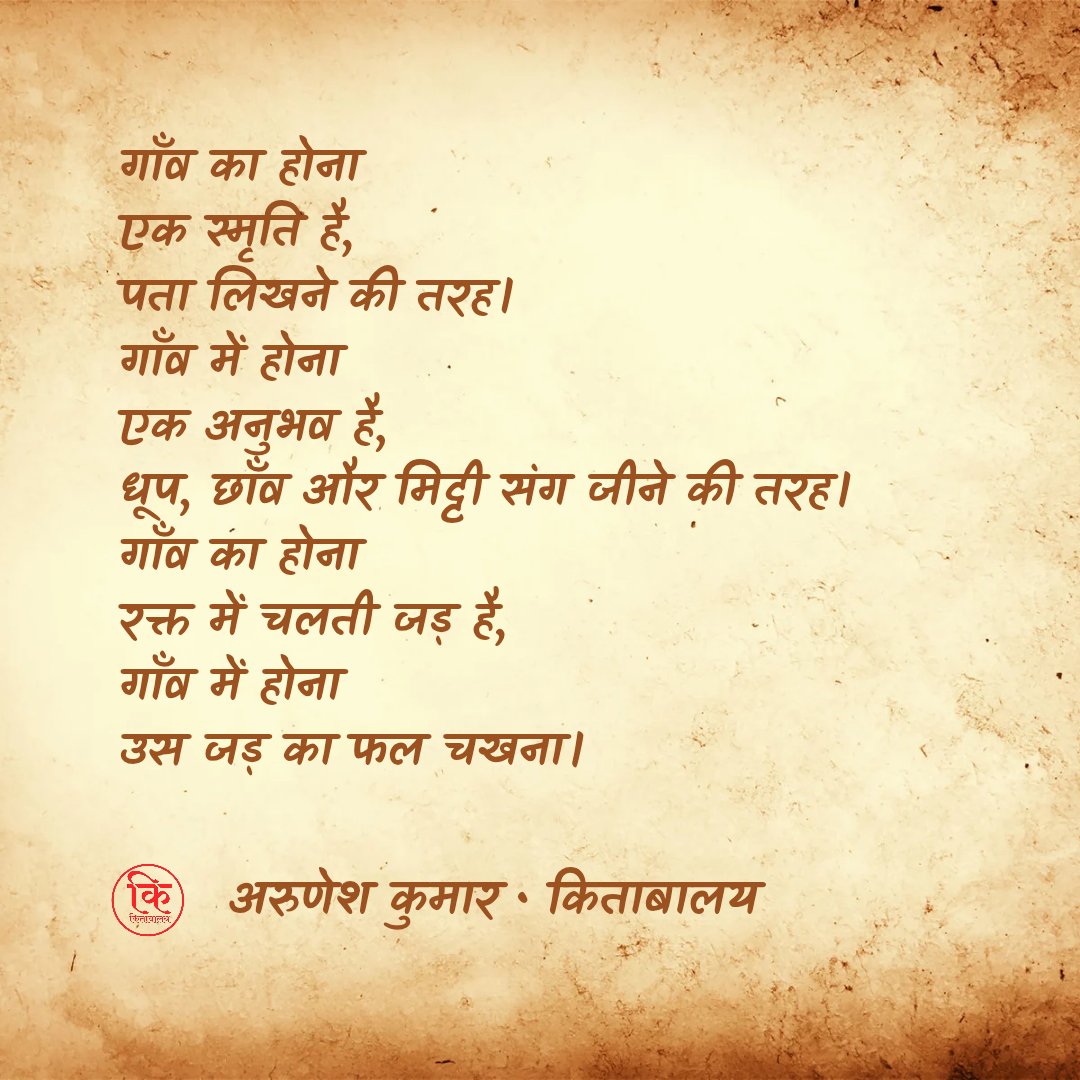 गाँव का होना
एक स्मृति है,
पता लिखने की तरह।
गाँव में होना
एक अनुभव है,
धूप, छाँव और मिट्टी संग जीने की तरह।
गाँव का होना
रक्त में चलती जड़ है,
गाँव में होना
उस जड़ का फल चखना।
कि
किताबालय
अरुणेश कुमार • किताबालय